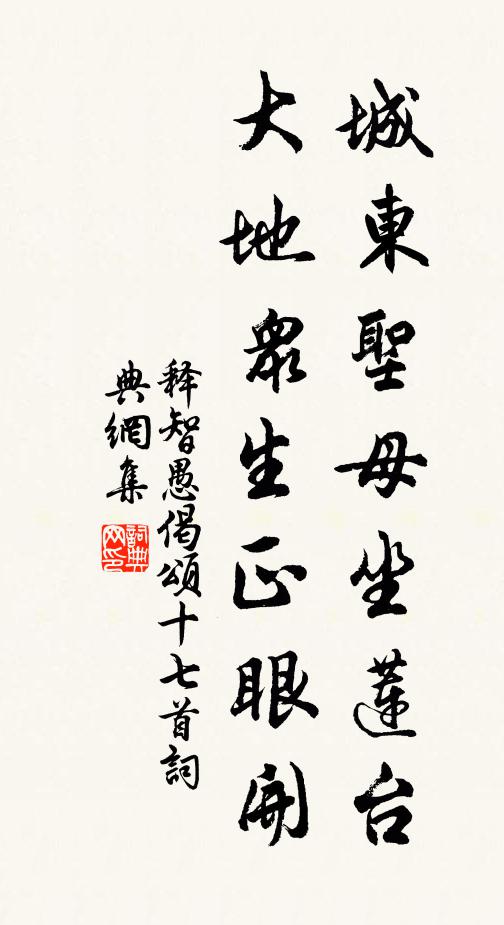 城東聖母坐蓮台
大地衆生正眼開
释智愚偈頌十七首詞
典網集
詞典
网印